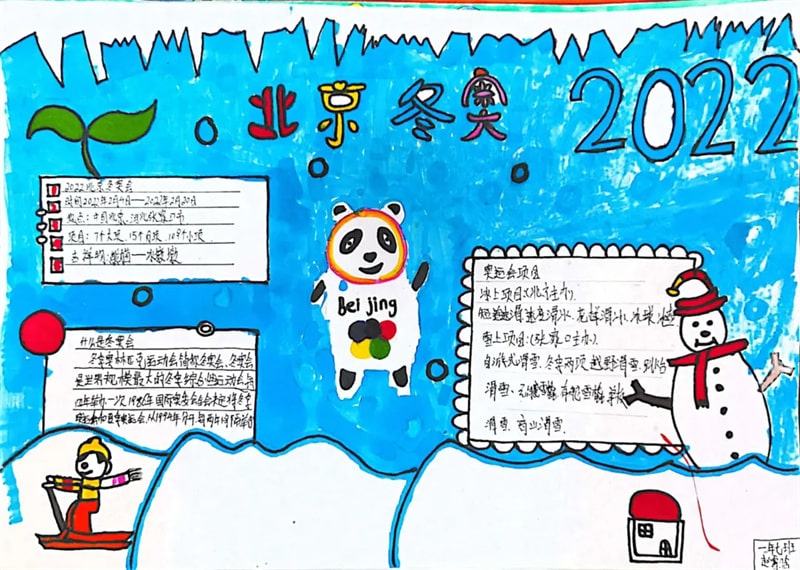 北京冬奥 2022
2022北京冬奥会
时间2022年2月4日——2022年2月20日
地点:中国北京、河北张家口市
项目:7个大项,15个分项,109个小项
吉祥物:熊猫——冰墩墩
Bei jing
什么是冬奥会
冬季奥林匹克运动会简称冬奥会,冬奥会
是世界规模最大的冬季综合性运动会,每
四年举办一次,1986年国际奥委会
奥运会项目
冰上项目:(北京主办).
短道速滑、速度滑冰、花样滑冰、冰球、冰壶
雪上项目:(张家口主办).
自由式滑雪、冬季两项、越野滑雪、跳台
滑雪、北欧
滑雪、高山滑雪.
一年七班